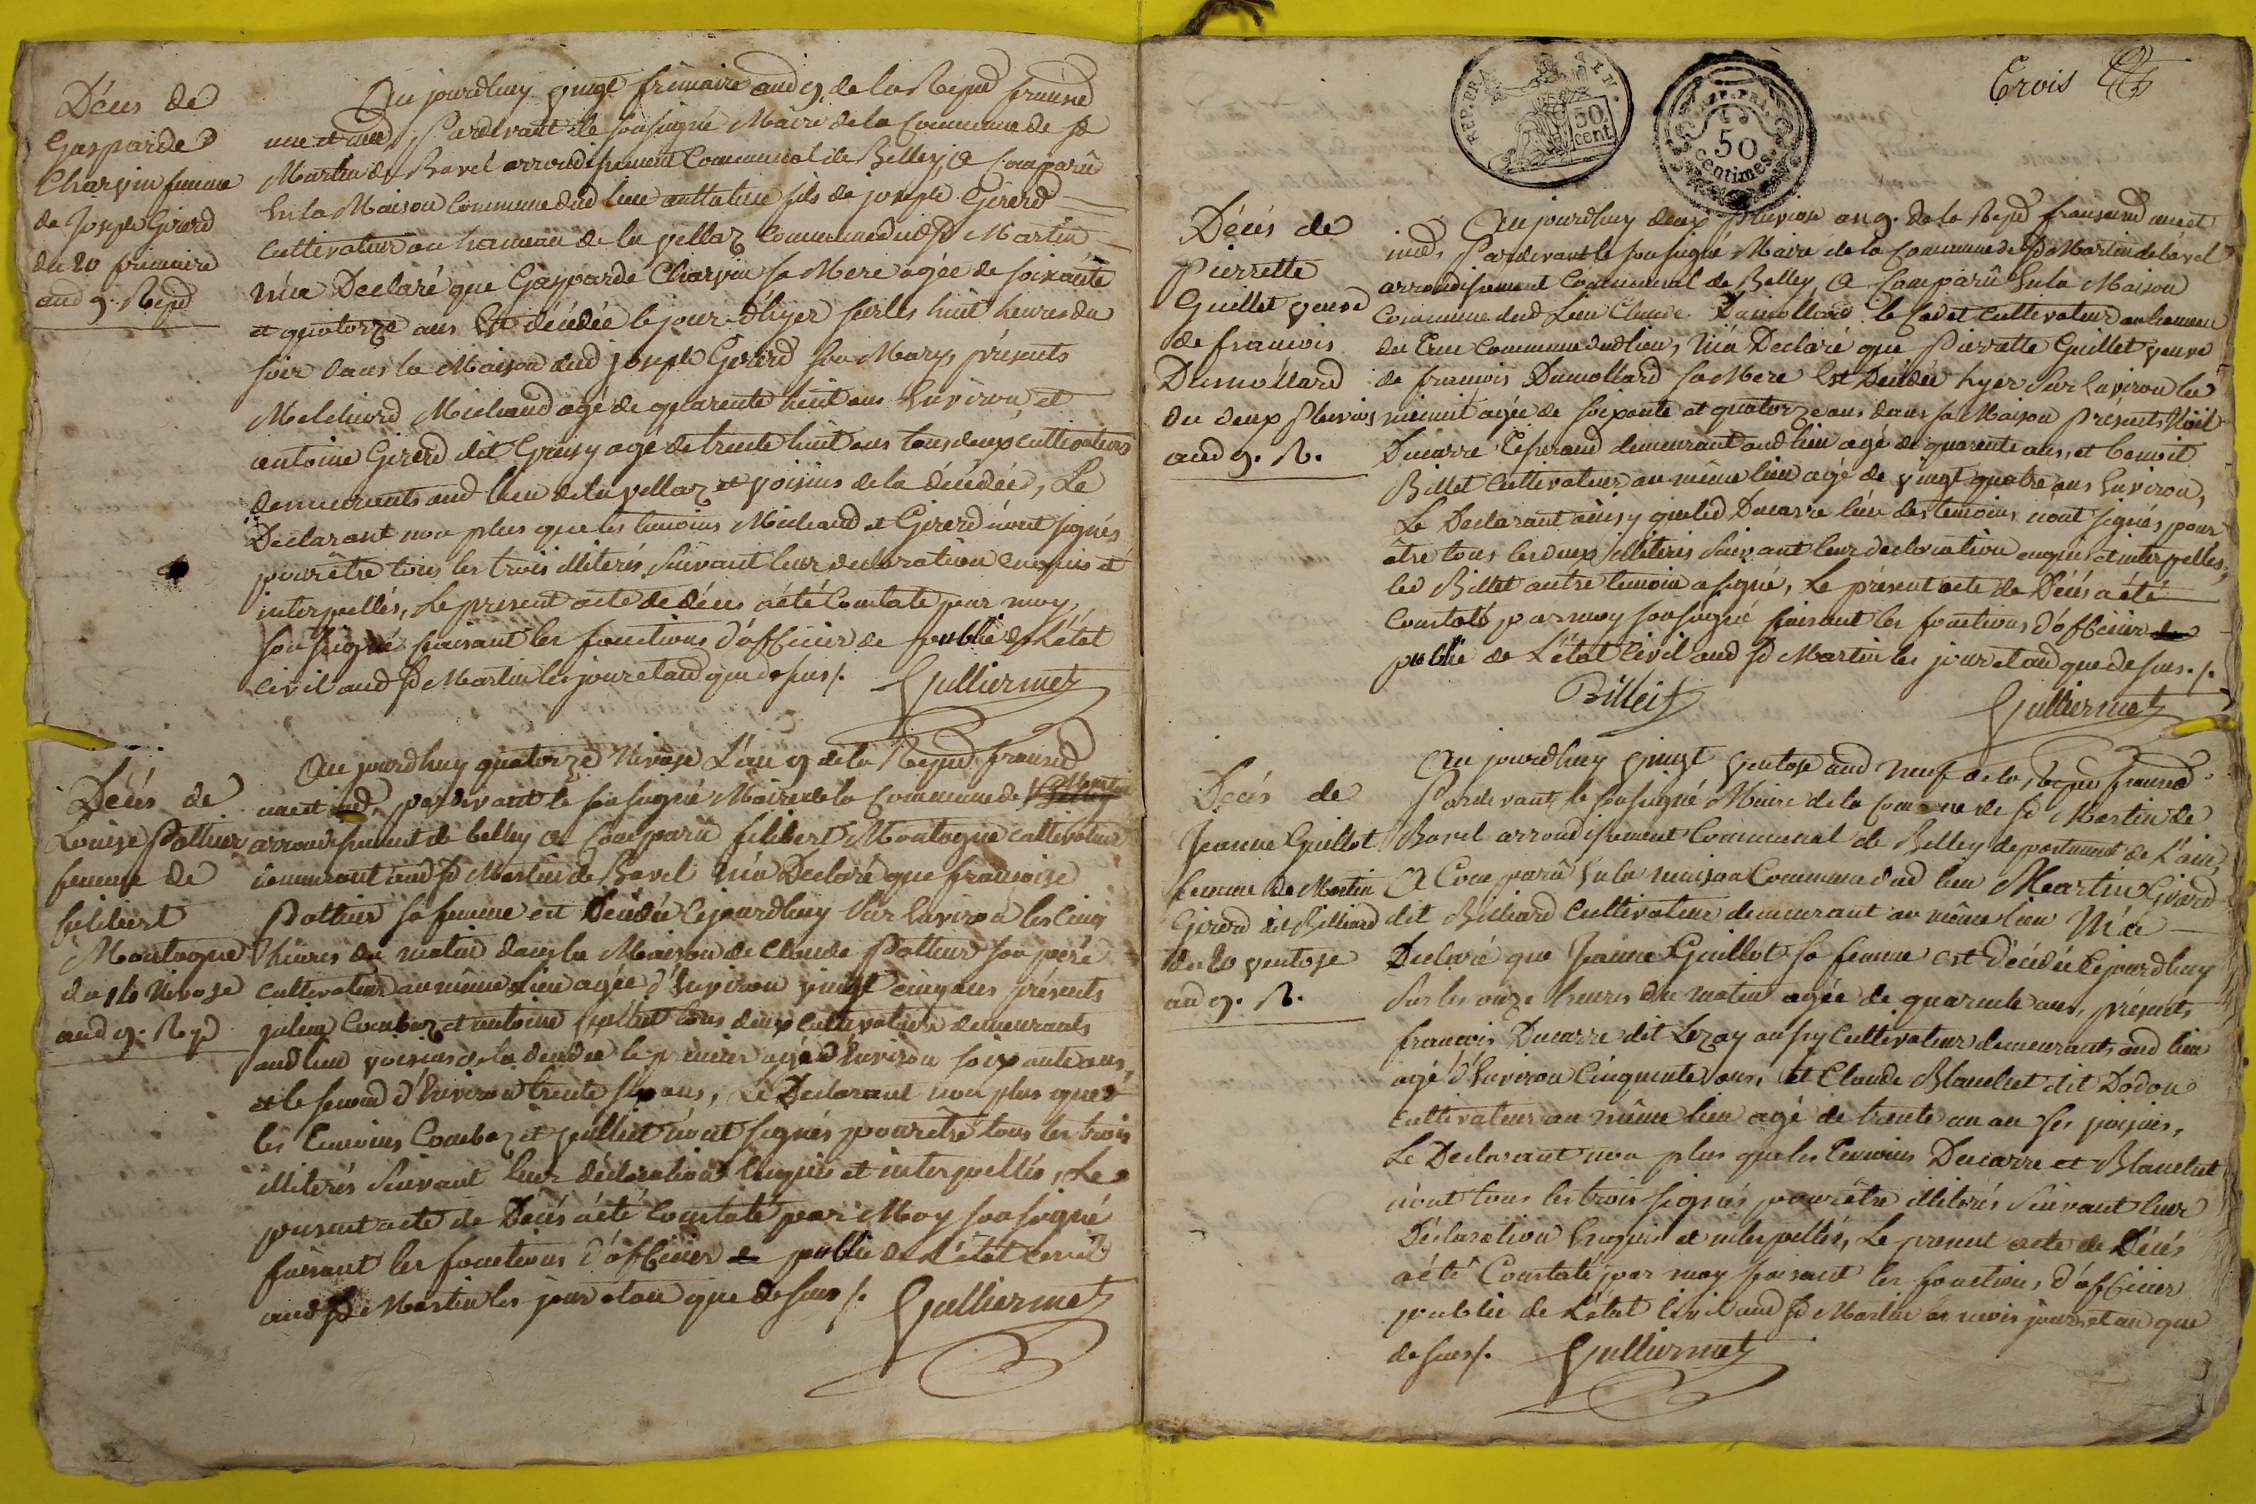 Décès de
Gasparde
Charvin femme
de Joseph Girerd
du 20 frimaire
and 9. Repd
Au jourdhuy vingt frimaire and 9, de la Repud fransed
une et ind, Pardevant le sousigné Maire de la Commune de St
Martin de Bavel arrondissement Communal de Belley, a Comparû
En la Maison Commune dud lieu anttoine fils de joseph Girerd
Cultivateur au hameau de la vellaz Commune dud St Martin
m'a Declaré que Gasparde Charvin sa Mere agée de soixante
et quatorze ans Est décédée le jour d'hyer sur les huit heures du
soir dans la Maison dud joseph Girerd son Mary, présents
Melchiord Michaud agé de quarente huit ans Environ, et
antoine Girerd dit Grisy agé de trente huit ans tous deux cultivateurs
demeurants aud lieu de la vellaz et voisins de la décédée, Le
Declarant non plus que les temoins Michaud et Girerd n'ont signés
pour être tous les trois illiterés Suivant leur declaration Enquis et
interpellés, Le present acte de décès a été Constaté par moy
sousigné faisant les fonctions d'officier de public de L'état
Civil aud St Martin les jour et and que dessus /.
Gulliermet
Décès de
Louise Pottier
femme de
filibert
Montagne
du 14 Nivose
and 9. Repd
Au jourdhuy quatorze Nivose L'an 9 de la Repud fransed
une et ind, pardevant le sousigné Maire de la Commune de
arrondissement de belley a Comparû filibert Montagne cultivateur
demeurant aud St Martin de Bavel m'a Declaré que francoise
Pottier sa femme est Décédée cejourdhuy Sur Environ les cinq
heures du matin dans la Maison de Claude Pottier son pere
cultivateur au même Lieu agée d'Environ vingt cinq ans présents
Combaz et antoine tous deux Cultivateurs demeurants
aud lieu voisins de la décédée le premier agé d'Environ soixante ans,
et le second d'Environ trente six ans, Le Declarant non plus que
les temoins Combaz et n'ont signés pour être tous les trois
illiterés Suivant leur déclaration Enquis et interpellés, Le
present acte de Décès a été Constaté par Moy sousigné
faisant les fonctions d'officier public de L'état Civil
aud St Martin les jour et an que dessus /.
Gulliermet
REP. FRA
50
cent
TIMP. FRA
50
Centimes
Trois
Décès de
Pierrette
Guillet veuve
de francois
Dumollard
du deux Pluvios
and 9. R.
Au jourdhuy deux Pluviose an 9. de la Repud fransaised une et
ind, Pardevant le sousigné Maire de la Commune de St Martin de bavel
arrondissement Communal de Belley, a Comparû En la Maison
Commune dud Lieu Claude Dumollard le Cadet cultivateur au hameau
du Commune dud lieu, m'a Declaré que Pierrette Guillet veuve
de francois Dumollard sa Mere Est Décédée hyer Sur Environ le
minuit agée de soixante et quatorze ans dans sa Maison Presents Noël
Ducarre Tisserand demeurant aud lieu agé de quarente ans, et benoit
Billet Cultivateur au même lieu agé de vingt quatre ans Environ,
Le Declarant ainsy que led Ducarre l'un des temoins n'ont signés pour
être tous les deux illiterés Suivant leur declaration enquis et interpellés,
led Billet autre temoin a signé, Le présent acte de Décès a été
Constaté par moy sousigné faisant les fonctions d'officier
public de L'état Civil aud St Martin les jour et and que dessus. /.
Billeit
Gulliermet
Décès de
Jeanne Guillot
femme de Martin
Girerd dit Billiard
du 20 ventose
and 9. R.
Au jourdhuy vingt ventose and neuf de la Repud fransed
Pardevant le sousigné Maire de la Commune de St Martin de
Bavel arrondissement Communal de Belley departement de L'ain,
a Comparû En la maison Commune dud lieu Martin Girerd
dit Billiard Cultivateur demeurant au même lieu M'a
Declaré que Jeanne Guillot sa femme est décédée cejourdhuy
Sur les onze heures du matin agée de quarente ans, présents
francois Ducarre dit Lezay aussy Cultivateur demeurants aud lieu
agé d'Environ Cinquente ans, et Claude Blanchet dit Dodon
Cultivateur au même lieu agé de trente un an Ses voisins,
Le Declarant non plus que les temoins Ducarre et Blanchet
n'ont tous les trois signés pour être illiterés Suivant leur
Déclaration Enquis et interpellés, Le present acte de Décès
a été Constaté par moy faisant les fonctions d'officier
public de L'état Civil aud St Martin les mois jour et an que
dessus /.
Gulliermet